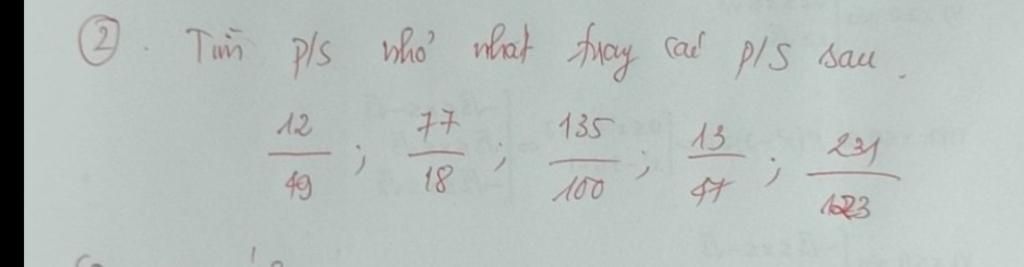 ② . Tìm p/s nhỏ nhất trong các p/s sau .
12/49 ; 77/18 ; 135/100 ; 13/47 ; 231/123